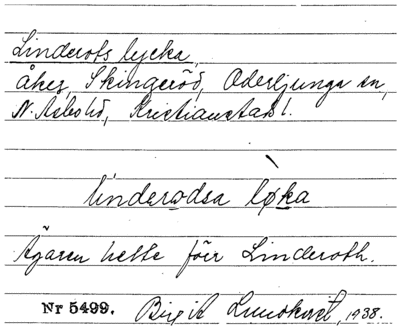 Linderots lycka,
åker, Skingeröd, Oderljunga sn,
N. Åsbo hd, Kristianstads l.
linderodsa løka
Ägaren hette förr Linderoth.
Nr 5499. Birgit Lundkvist, 1938.